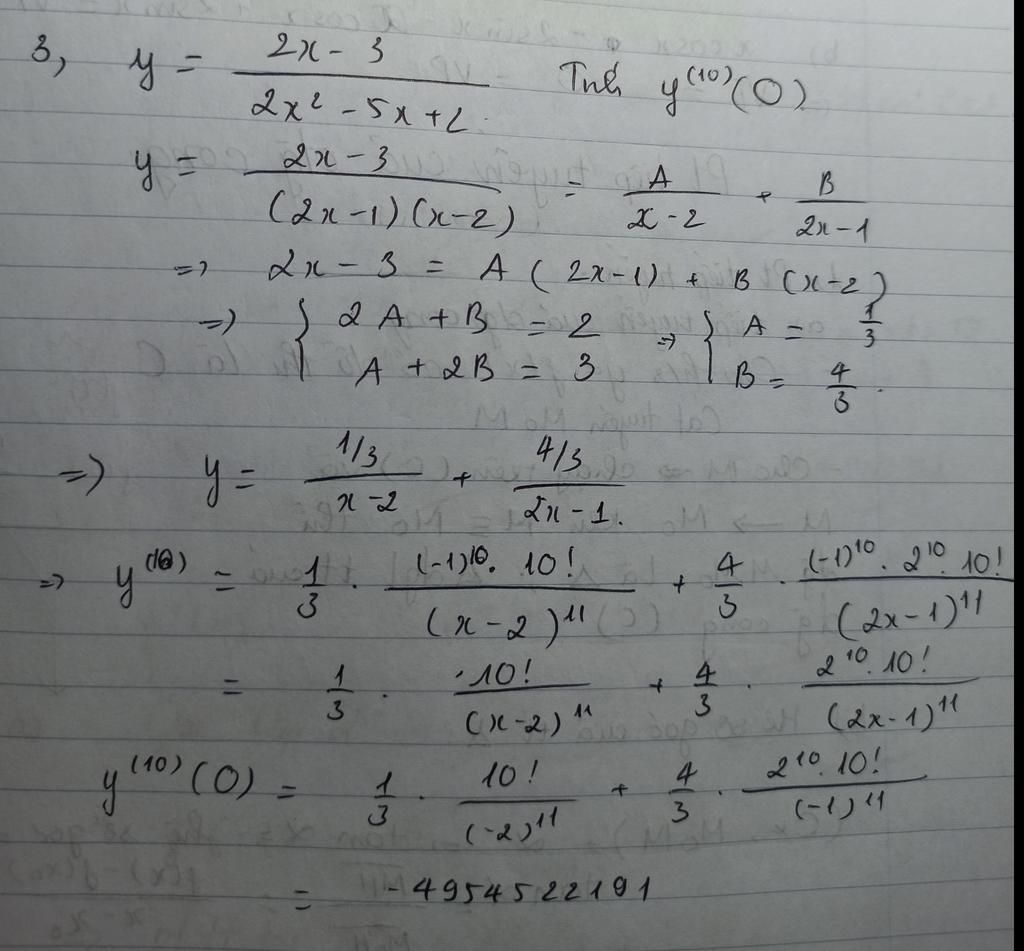 3, y = \frac{2x - 3}{2x^2 - 5x + 2} Tính y^{(10)}(0)
y = \frac{2x - 3}{(2x - 1)(x - 2)} = \frac{A}{x - 2} + \frac{B}{2x - 1}
=> 2x - 3 = A(2x - 1) + B(x - 2)
=> { 2A + B = 2 => { A = \frac{1}{3}
A + 2B = 3 B = \frac{4}{3}.
=> y = \frac{1/3}{x - 2} + \frac{4/3}{2x - 1}.
=> y^{(10)} = \frac{1}{3} . \frac{(-1)^{10} . 10!}{(x - 2)^{11}} + \frac{4}{3} . \frac{(-1)^{10} . 2^{10} . 10!}{(2x - 1)^{11}}
= \frac{1}{3} . \frac{10!}{(x - 2)^{11}} + \frac{4}{3} . \frac{2^{10} . 10!}{(2x - 1)^{11}}
y^{(10)}(0) = \frac{1}{3} . \frac{10!}{(-2)^{11}} + \frac{4}{3} . \frac{2^{10} . 10!}{(-1)^{11}}
= -4954522191